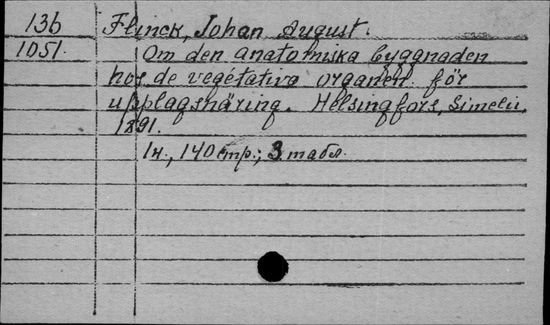 13b Flinck, Johan August.
1051. Om den anatomiska byggnaden
hos de vegetativa organen för
upplagsnäring. Helsingfors, Simelii,
1891.
1н., 140 стр.; 3 табл.